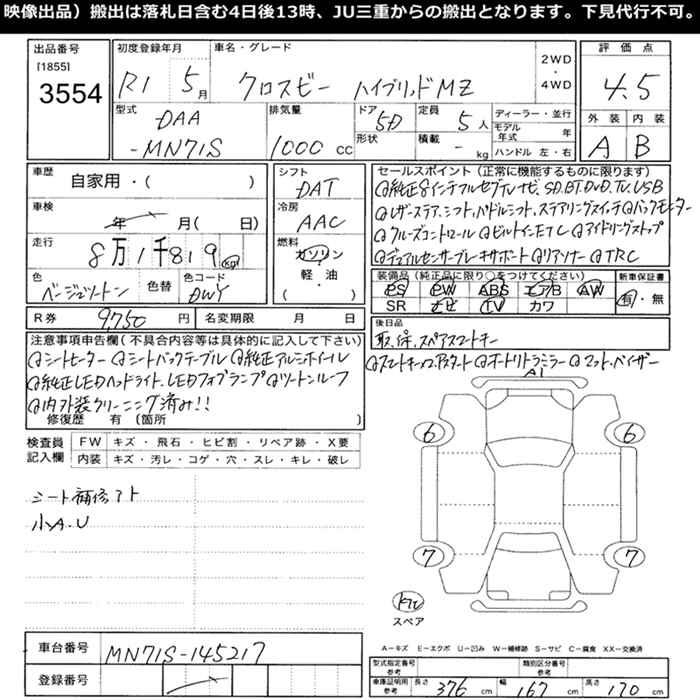 映像出品）搬出は落札日含む4日後13時、JU三重からの搬出となります。下見代行不可。
出品番号
[1855]
3554
初度登録年月
R1 5月
車名・グレード
クロスビー ハイブリッドMZ
2WD
・
4WD
評価点
4.5
外装 内装
A B
型式
DAA
-MN71S
排気量
1000 CC
ドア
5D
形状
定員
5人
積載
- kg
ディーラー・並行
モデル年式 年
ハンドル 左・右
車歴
自家用・( )
車検
年 月( 日)
走行
8万1千819 km
色
ベージュツートン
色替
色コード
DWY
シフト
DAT
冷房
AAC
燃料
ガソリン
軽・油
( )
セールスポイント（正常に機能するものに限ります）
@純正8インチフルセグTVナビ、SD.BT.DVD.TV.USB
@レザーステア、シフト、パドルシフト、ステアリングスイッチ@バックモニター
@クルーズコントロール@ビルトインETC@アイドリングストップ
@デュアルセンサーブレーキサポート@リアソナー@TRC
装備品（純正品に限り○をつけてください）
PS PW ABS エアB AW
SR ナビ TV カワ
新車保証書
有・無
R券 9,750円
名変期限 月 日
後日品
取、保、スペアスマートキー
注意事項申告欄(不具合内容等は具体的に記入して下さい)
@シートヒーター @シートバックテーブル @純正アルミホイール
@スマートキー×2、Pスタート @オートリトラミラー @マット、バイザー
@純正LEDヘッドライト、LEDフォグランプ @ツートンルーフ
@内外装クリーニング済み!!
修復歴 有(箇所 )
検査員
記入欄
FW キズ・飛石・ヒビ割・リペア跡・X要
内装 キズ・汚レ・コゲ・穴・スレ・キレ・破レ
シート補修アト
小A.U
A1
6 6
7 7
スペア
車台番号 MN71S-145217
登録番号
A−キズ E−エクボ U−凹み W−補修跡 S−サビ C−腐食 XX−交換済
型式指定番号
参考
類別区分番号
参考
車庫証明用
参考
長さ 376 cm 幅 167 cm 高さ 170 cm